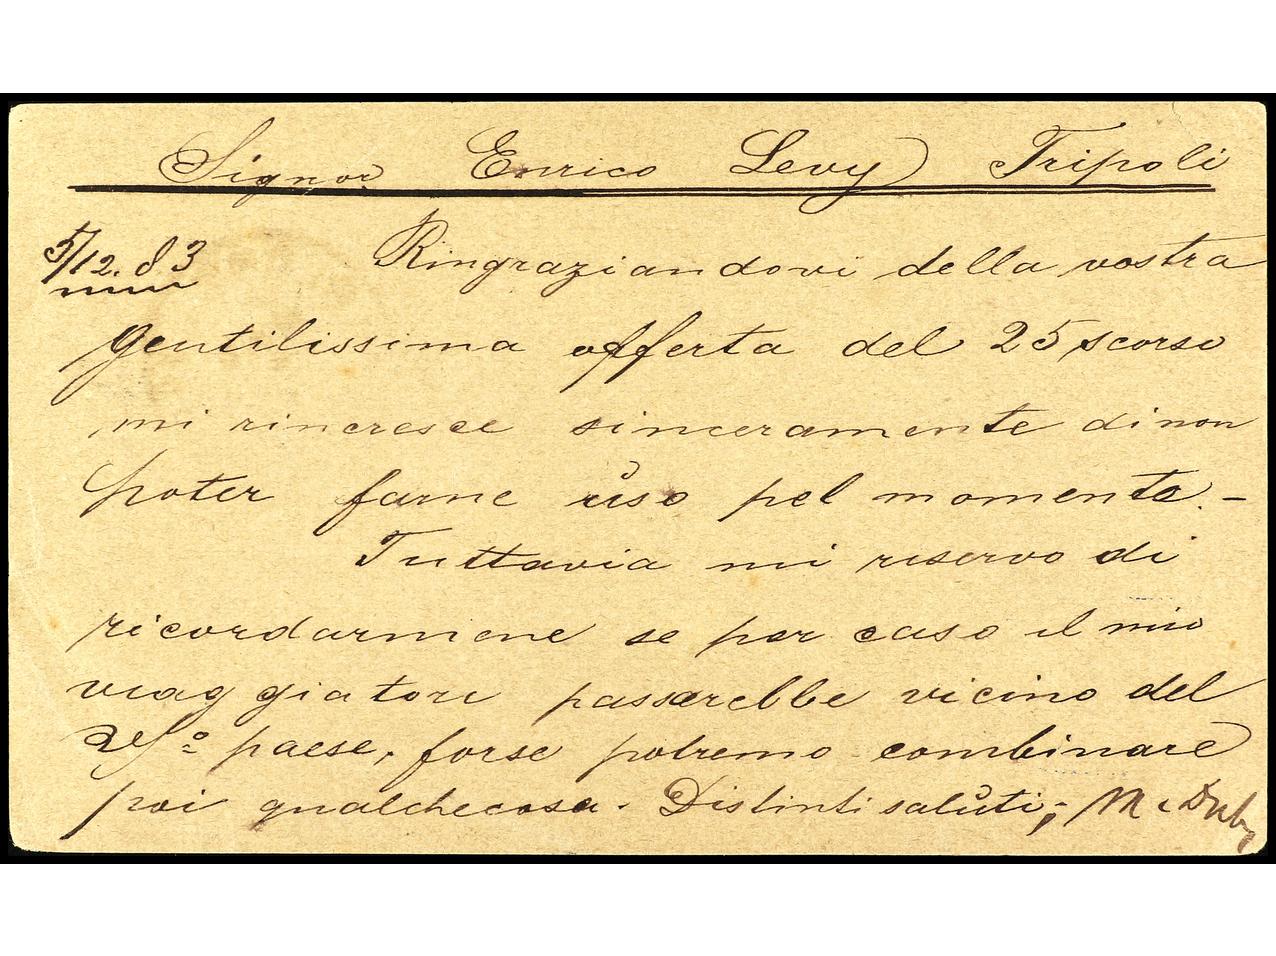 Signor Enrico Levy Tripoli
5/12.83 Ringraziandovi della vostra
gentilissima offerta del 25 scorso
mi rincresce sinceramente di non
poter farne uso pel momente. -
Tuttavia mi riservo di
ricordarmene se per caso il mio
viaggiatori passerebbe vicino del
paese, forse potremo combinare
poi qualchecosa. Distinti saluti,